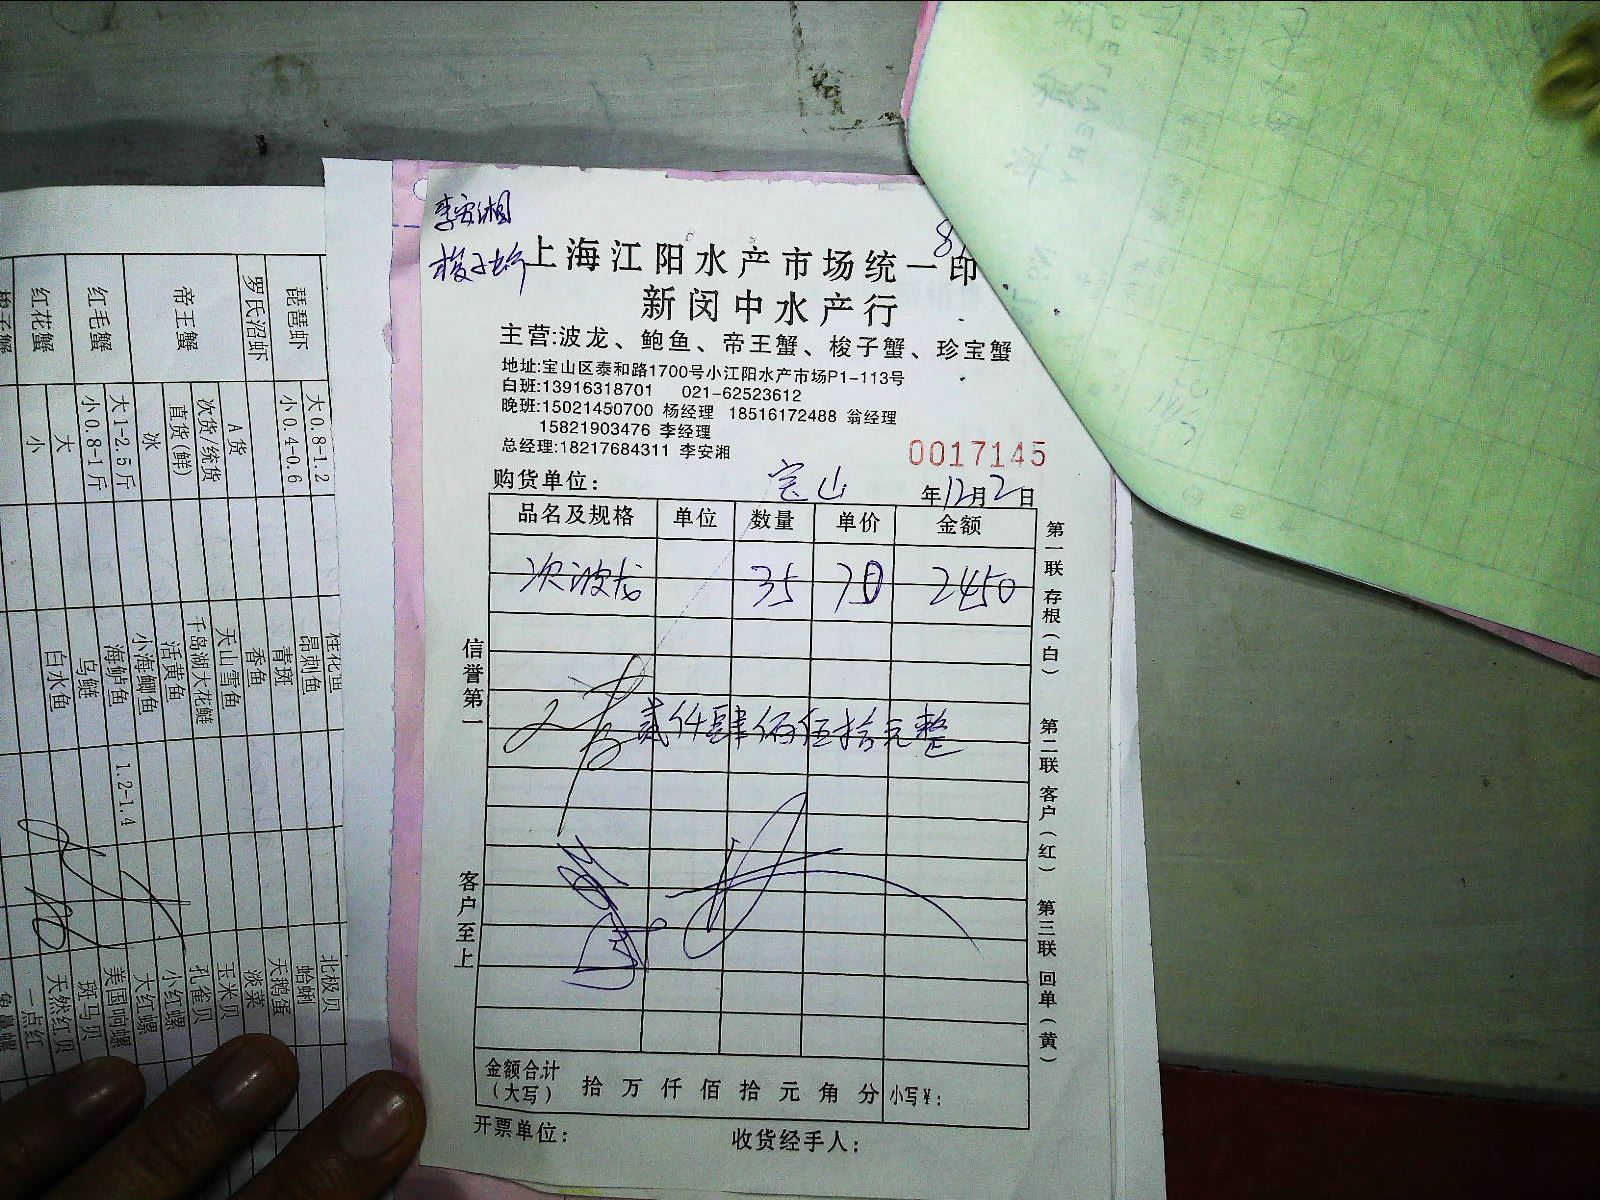 李安湘
梭子蟹
上海江阳水产市场统一印
新闵中水产行
主营:波龙、鲍鱼、帝王蟹、梭子蟹、珍宝蟹
地址:宝山区泰和路1700号小江阳水产市场P1-113号
白班:13916318701 021-62523612
晚班:15021450700 杨经理 18516172488 翁经理
15821903476 李经理
总经理:18217684311 李安湘
0017145
购货单位: 宝山 年12月2日
品名及规格 单位 数量 单价 金额
次波龙 35 70 2450
贰仟肆佰伍拾元整
金额合计(大写) 拾 万 仟 佰 拾 元 角 分 小写¥:
开票单位: 收货经手人:
信誉第一
客户至上
第一联 存根(白)
第二联 客户(红)
第三联 回单(黄)
琵琶虾 大0.8-1.2
小0.4-0.6
罗氏沼虾
帝王蟹 A货
次货/统货
直货(鲜)
冰
红毛蟹 大1-2.5斤
小0.8-1斤
红花蟹 大
小
梭子蟹
昂刺鱼
青斑
香鱼
天山雪鱼
千岛湖大花鲢
活黄鱼
小海鲫鱼
海鲈鱼 1.2-1.4
乌鲢
白水鱼
北极贝
蛤蜊
天鹅蛋
淡菜
玉米贝
孔雀贝
小红螺
大红螺
美国响螺
斑马贝
天然红贝
一点红
DELIVERY